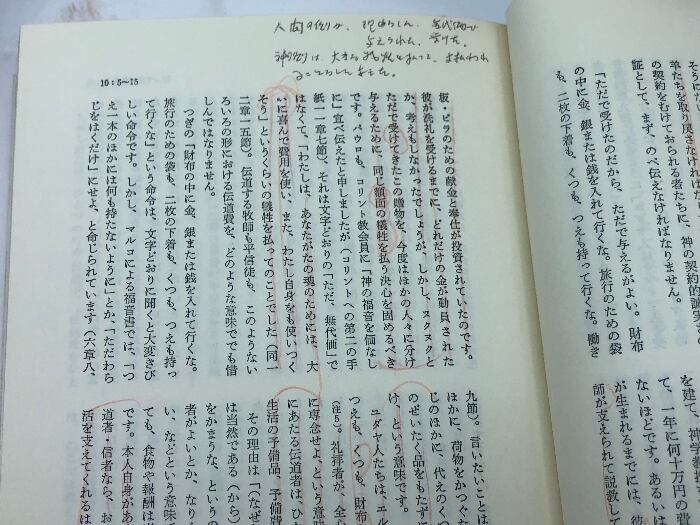 人間の側が、
無代価で
与えられた、受けた。
神の側は、大きな犠牲を払って、支払われ
10:5〜15
そうに
羊たちを取り戻さなければ
の契約をむけておられる者たちに、神の契約的誠実の
証として、まず、のべ伝えなければなりません。
「ただで受けたのだから、ただで与えるがよい。財布
の中に金、銀または銭を入れて行くな。旅行のための袋
も、二枚の下着も、くつも、つえも持って行くな。働き
を建て、神学教
て、一年に何十万円の
ないほどです。あるい
が生まれるまでには、彼
師が支えられて説教し
板・ビラのための献金と奉仕が投資されていたのです。
彼が洗礼を受けるまでに、どれだけの金が動員された
か、考えもしなかったでしょうが、しかし、ヌクヌクと
ただで受けてきたこの贈物を、今度はほかの人々に分け
与えるために、同じ額面の犠牲を払う決心を固めるべき
です。パウロも、コリント教会員に「神の福音を価なし
に」宣べ伝えたと申しましたが(コリントへの第二の手
紙一一章七節)、それは文字どおりの「ただ、無代価」で
はなくて、「わたしは、あなたがたの魂のためには、大
いに喜んで費用を使い、また、わたし自身をも使いつく
そう」というくらいの犠牲を払ってのことでした(同一
二章一五節)。伝道する牧師も平信徒も、このようない
ろいろの形における伝道費を、どのような意味ででも惜
しんではなりません。
つぎの「財布の中に金、銀または銭を入れて行くな。
旅行のための袋も、二枚の下着も、くつも、つえも持っ
て行くな」という命令は、文字どおりに聞くと大変きび
しい命令です。しかし、マルコによる福音書では、「つ
え一本のほかには何も持たないように」とか、「ただわら
じをはくだけ」にせよ、と命じられています(六章八、
九節)。言いたいことは
ほかに、荷物をかつぐた
じのほかに、代えのくつ
のぜいたく品をもたず
け、という意味です。
ユダヤ人たちは、エル
つえも、くつも、財布
(注5)。礼拝者が、全心
に専念せよ、という意味
にあたる伝道者は、ひた
生活の予備品、予備費
その理由は「(なぜ
は当然である(から)
をかまうな、というの
者がよいとか、なりふ
い、などという意味
ても、食物や報酬は
です。本人自身があ
道者・信者なら、お
活を支えてくれるは